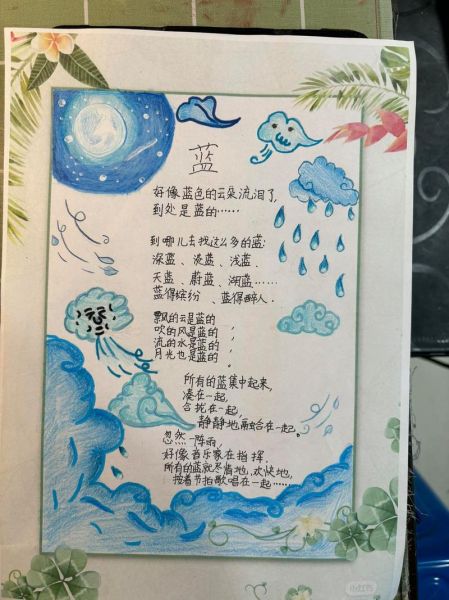 蓝
好像蓝色的云朵流泪了，
到处是蓝的……
到哪儿去找这么多的蓝：
深蓝、淡蓝、浅蓝、
天蓝、蔚蓝、湖蓝……
蓝得缤纷、蓝得醉人.
飘的云是蓝的，
吹的风是蓝的，
流的水是蓝的，
月光也是蓝的。
所有的蓝集中起来，
凑在一起，
合拢在一起，
静静地融合在一起。
忽然一阵雨，
好像音乐家在指挥，
所有的蓝就尽情地,欢快地，
按着节拍歌唱在一起……